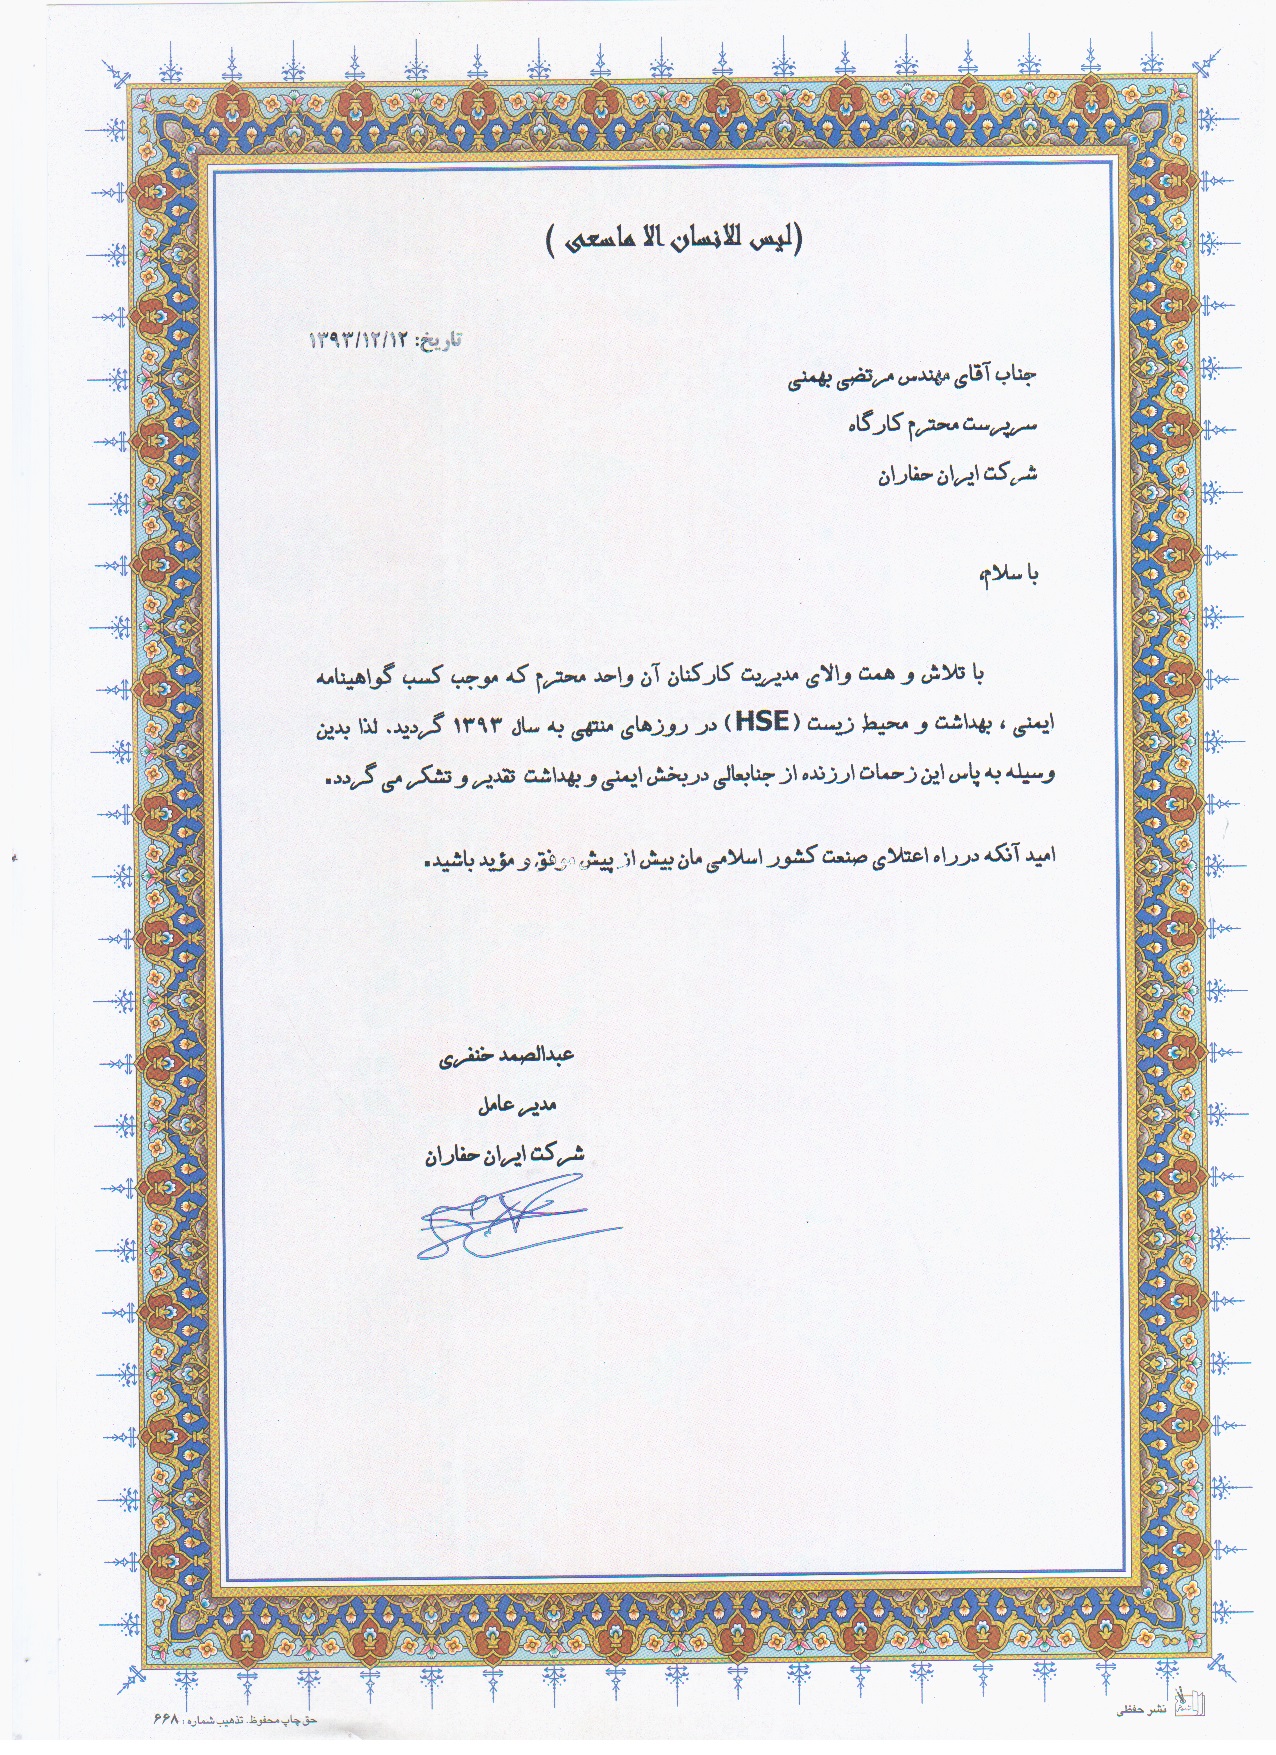 (لیس للانسان الا ماسعی )
تاریخ: ۱۳۹۳/۱۲/۱۲
جناب آقای مهندس مرتضی بهمنی
سرپرست محترم کارگاه
شرکت ایران حفاران
با سلام،
با تلاش و همت والای مدیریت کارکنان آن واحد محترم که موجب کسب گواهینامه
ایمنی ، بهداشت و محیط زیست (HSE) در روزهای منتهی به سال ۱۳۹۳ گردید. لذا بدین
وسیله به پاس این زحمات ارزنده از جنابعالی دربخش ایمنی و بهداشت تقدیر و تشکر می گردد.
امید آنکه درراه اعتلای صنعت کشور اسلامی مان بیش از پیش موفق و مؤید باشید.
عبدالصمد خنفری
مدیر عامل
شرکت ایران حفاران
نشر حفظی
حق چاپ محفوظ. تذهیب شماره : ۶۶۸